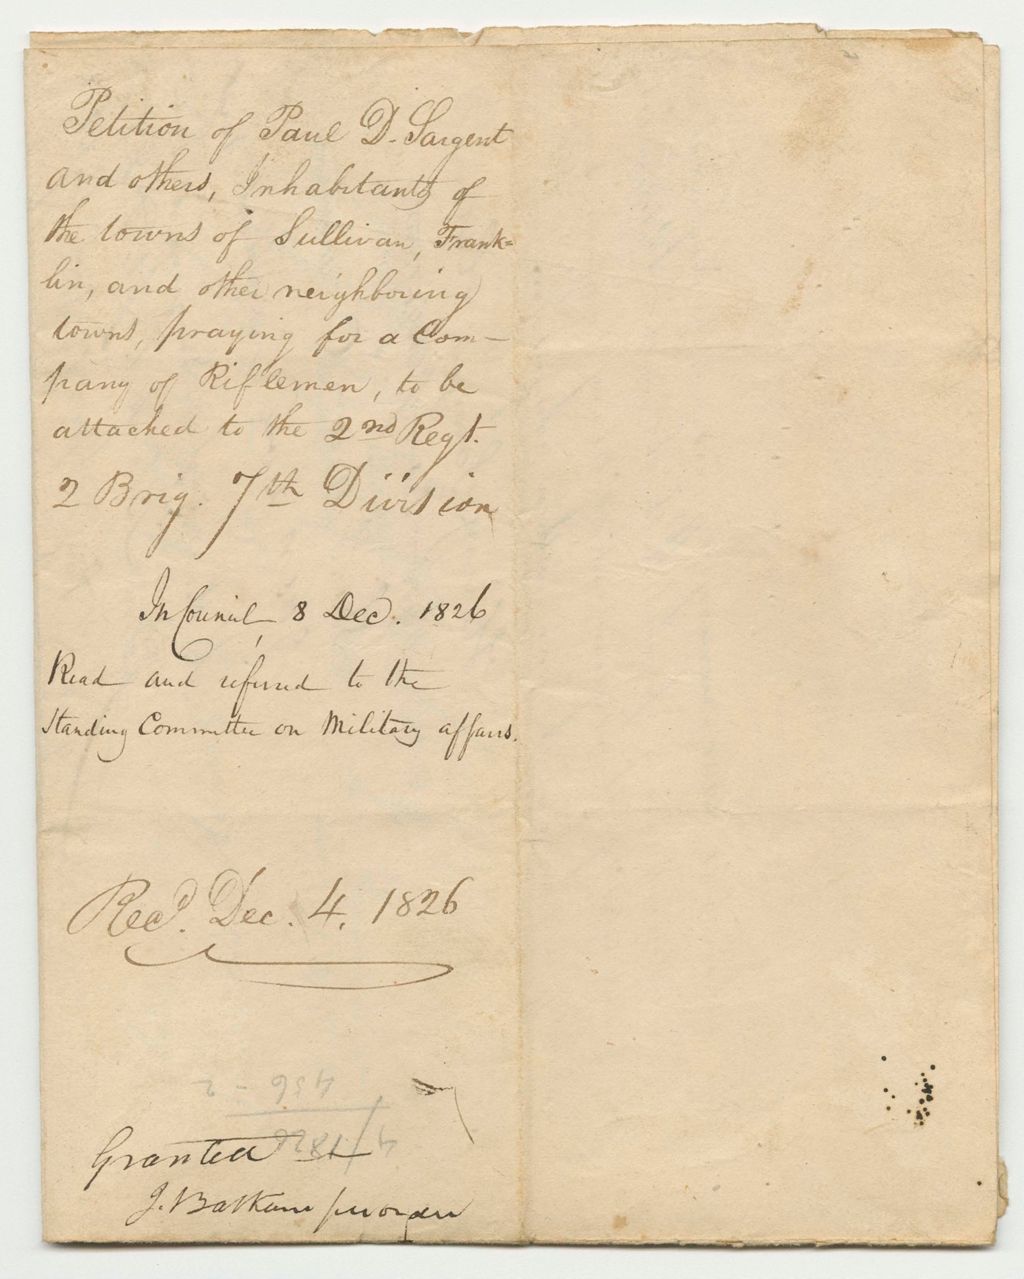 Petition of Paul D. Sargent
and others, Inhabitants of
the towns of Sullivan, Frank=
lin, and other neighboring
towns, praying for a Com-
pany of Riflemen, to be
attached to the 2nd Regt.
2 Brig. 7th Division
In Council, 8 Dec. 1826
Read and referred to the
Standing Committee on Military affairs.
Recd. Dec. 4. 1826
Granted
J. Balkam
4/1826
456 - 2